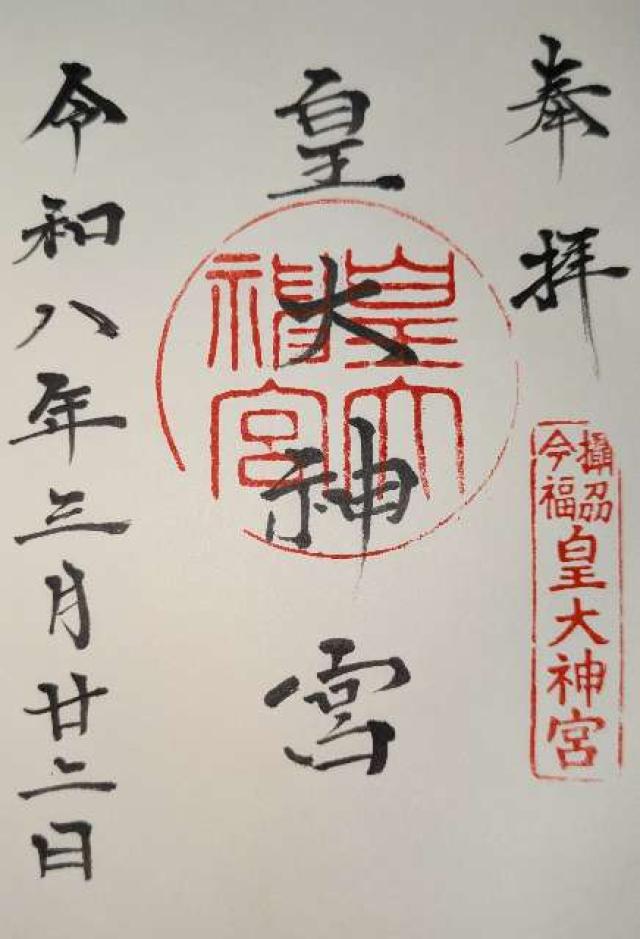 奉拝
攝刕
今福
皇大神宮
皇大神宮
皇大
神宮
令和八年三月廿二日